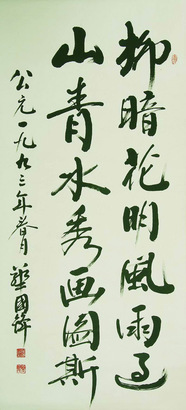 柳暗花明風雨过
山青水秀画图斯
公元一九九三年春月 華國鋒